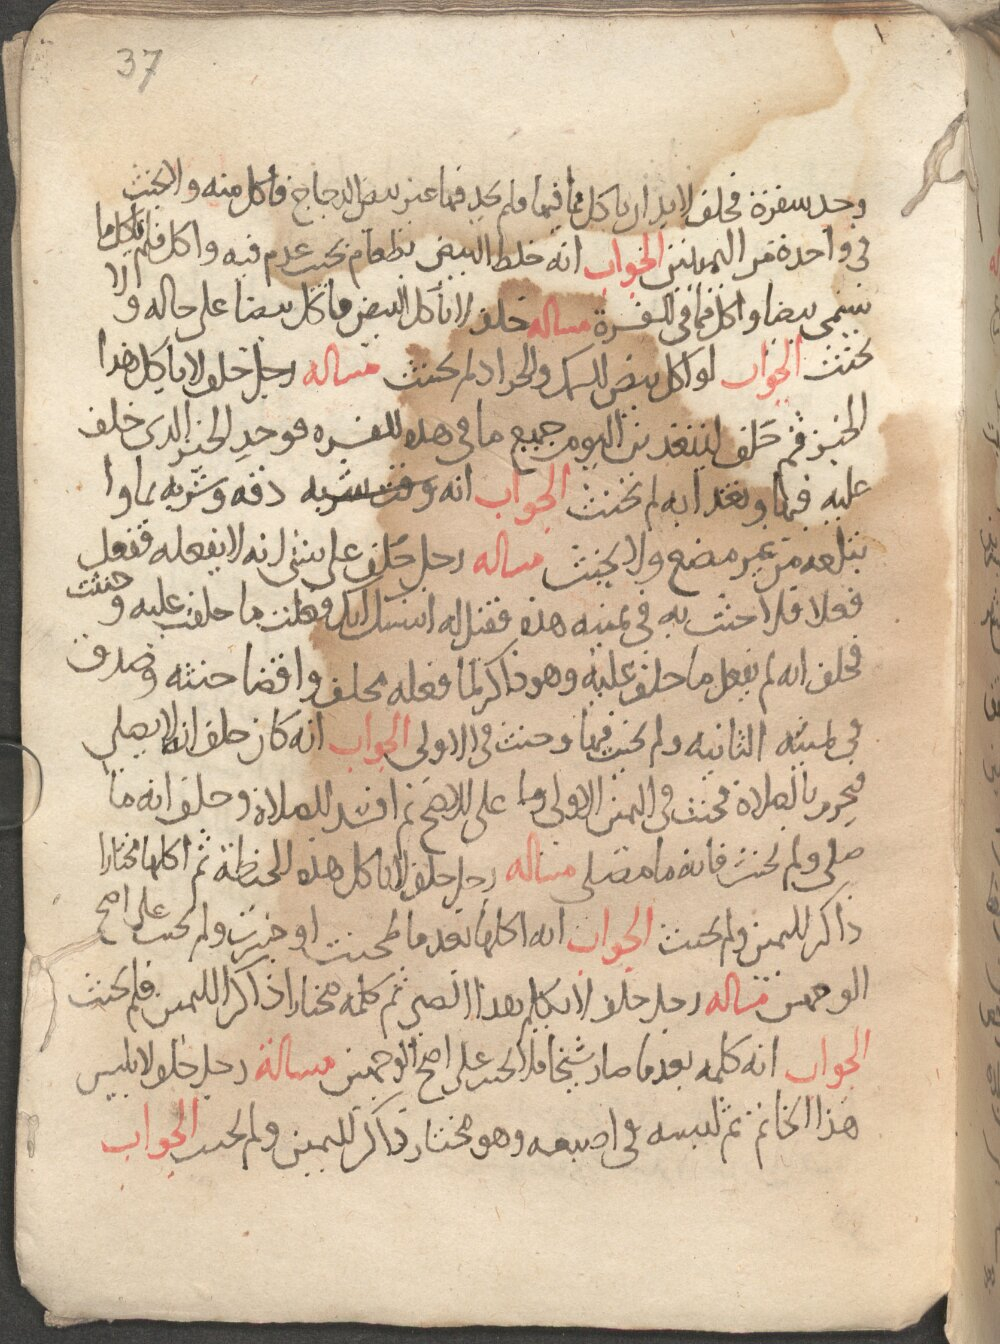 37
وجد سفرة فحلف لابد ان ياكل مما فيها فلم يجد فيها غير بيض الدجاج فأكل منه ولا يحنث
في واحدة من اليمينين الجواب انه خلط البيض بطعام بحيث عدم فيه واكل فلم ياكل ما
يسمى بيضا واكل مما في السفرة مساله حلف لا ياكل البيض فاكل بيضا على حاله ولا
يحنث الجواب لو اكل بيض السمك والجراد لم يحنث مساله رجل حلف لا ياكل هذا
الخبز ثم حلف ليتغدين اليوم جميع ما في هذه السفره فوجد الخبز الذي حلف
عليه فيها وتغدا به لم يحنث الجواب انه دقه وشربه بماء او
ابتلعه من غير مضغ ولا يحنث مساله رجل حلف على شيء انه لا يفعله ففعل
فعلا حنث به في يمينه هذه فقيل له فعلت ما حلفت عليه وحنثت
فحلف انه لم يفعل ما حلف عليه وهو ذاكر لما فعله محلف وصدق
في يمينه الثانيه ولم يحنث فيها وحنث في الاولى الجواب انه كان حلف انه لا يصلي
فيحرم بالصلاة فحنث في اليمين الاولى على الاصح ثم افسد الصلاة وحلف انه ما
صلى ولم يحنث فانه ما صلى مساله رجل حلف لا ياكل هذه الحنطة ثم اكلها مختارا
ذاكرا لليمين ولم يحنث الجواب انه اكلها بعد ما طحنت او خبزت ولم يحنث على اصح
الوجهين مساله رجل حلف لا يكلم هذا الصبي ثم كلمه مختارا ذاكرا لليمين فلم يحنث
الجواب انه كلمه بعد ما صار شيخا فلا يحنث على اصح الوجهين مسالة رجل حلف لا يلبس
هذا الخاتم ثم لبسه في اصبعه وهو مختار ذاكر لليمين ولم يحنث الجواب